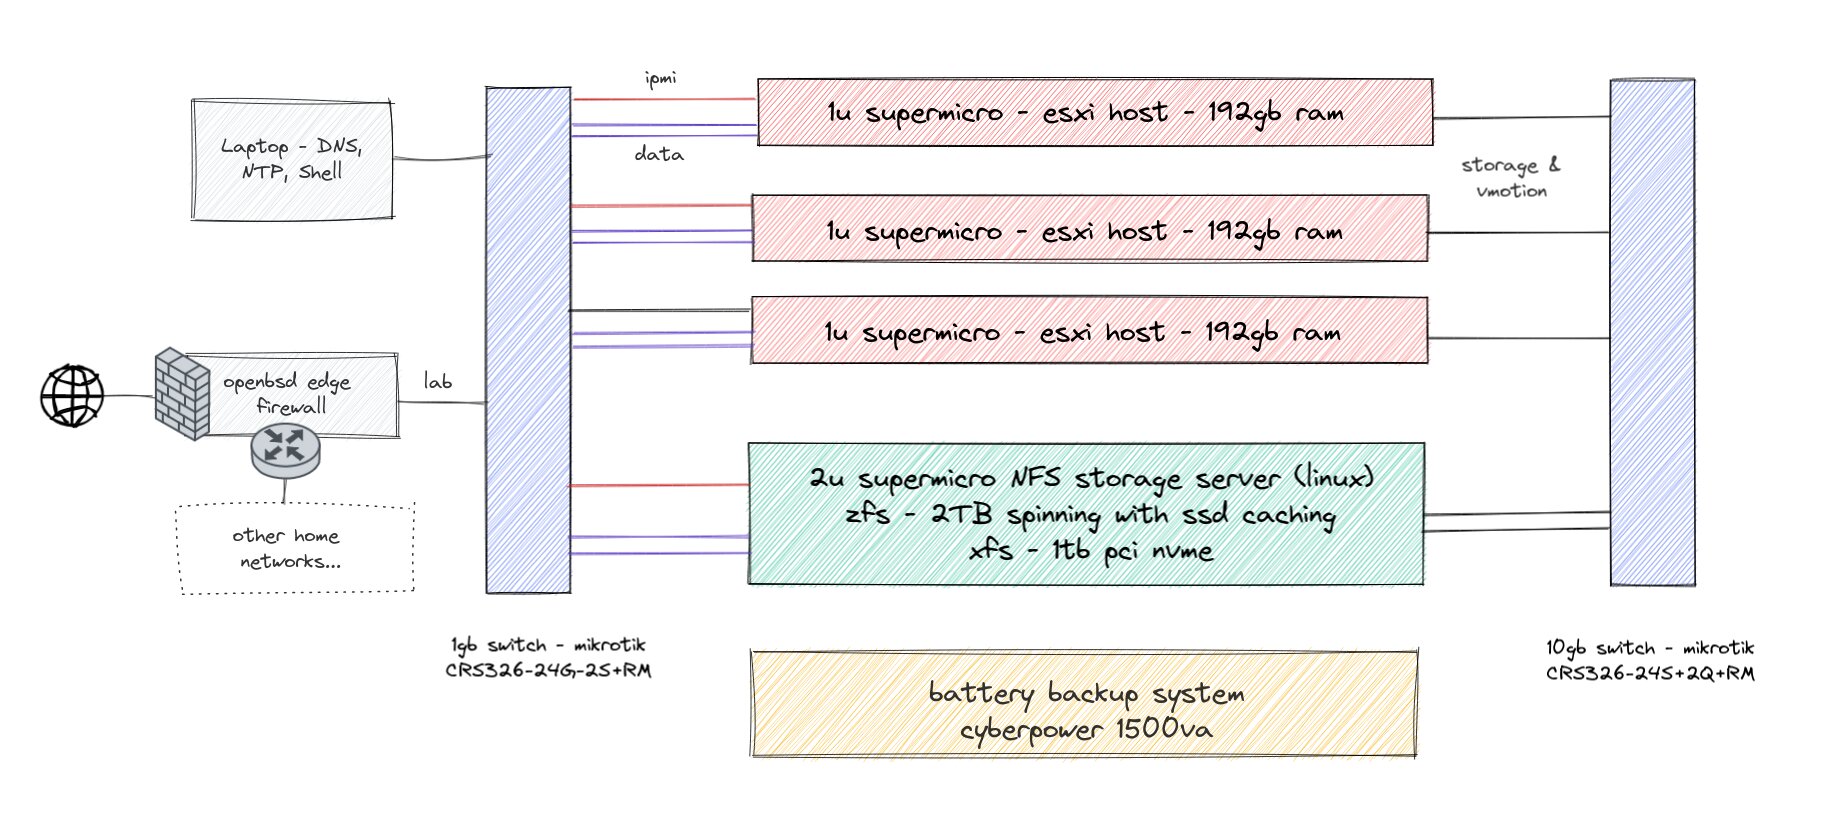 ipmi
1u supermicro - esxi host - 192gb ram
Laptop - DNS,
NTP, Shell
data
storage &
vmotion
1u supermicro - esxi host - 192gb ram
1u supermicro - esxi host - 192gb ram
openbsd edge
firewall
lab
2u supermicro NFS storage server (linux)
zfs - 2TB spinning with ssd caching
xfs - 1tb pci nvme
other home
networks...
1gb switch - mikrotik
CRS326-24G-2S+RM
10gb switch - mikrotik
CRS326-24S+2Q+RM
battery backup system
cyberpower 1500va